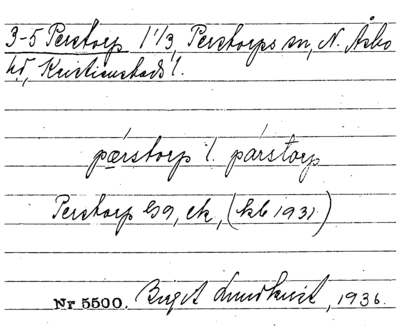 3-5 Perstorp 1 1/3, Perstorps sn, N. Åsbo
hd, Kristianstads l.
pǽrstorp l. párstorp
Perstorp G9, ek, (kb 1931)
Nr 5500. Birgit Lundkvist, 1936.